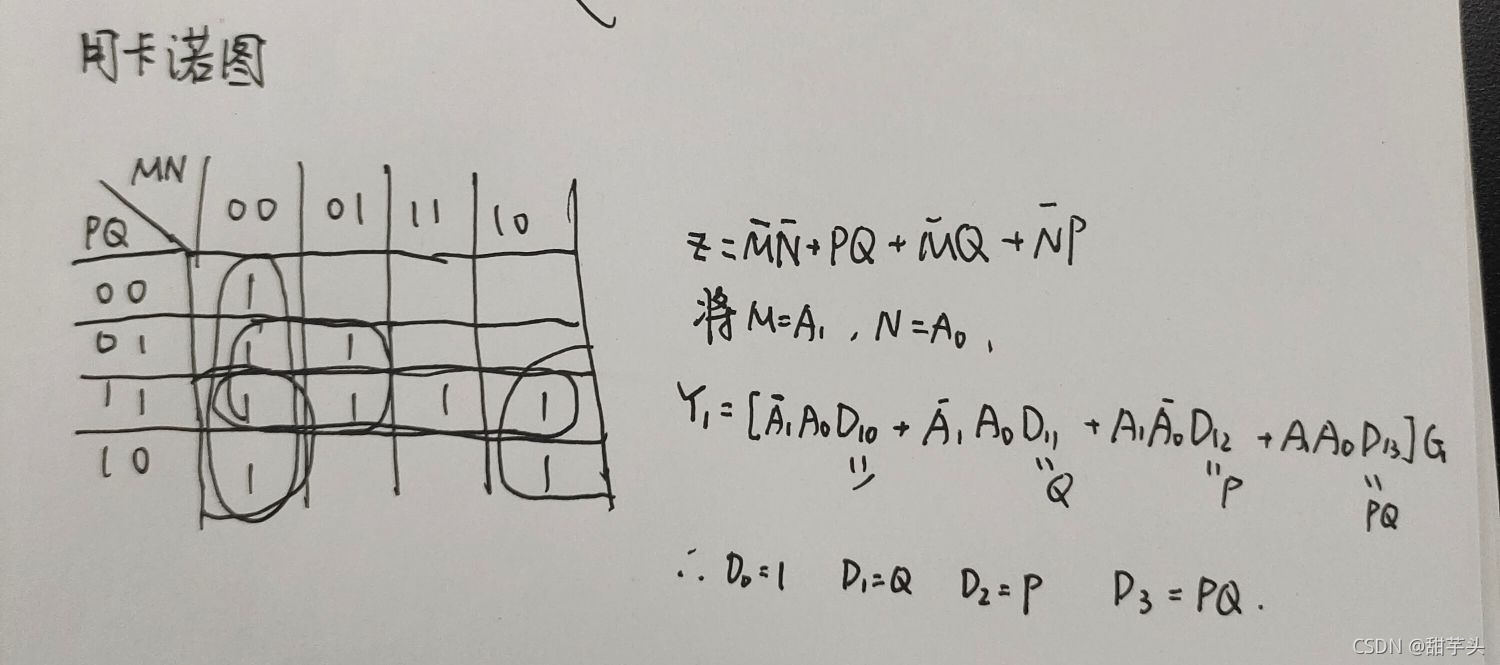 用卡诺图
MN
PQ 00 01 11 10
00 1
01 1 1
11 1 1 1 1
10 1 1
Z = M̄N̄ + PQ + M̄Q + N̄P
将 M=A₁ , N=A₀ ,
Y₁ = [Ā₁A₀D₁₀ + Ā₁A₀D₁₁ + A₁Ā₀D₁₂ + A₁A₀D₁₃]G
Q P PQ
∴ D₀=1 D₁=Q D₂=P D₃=PQ.
CSDN @甜芋头